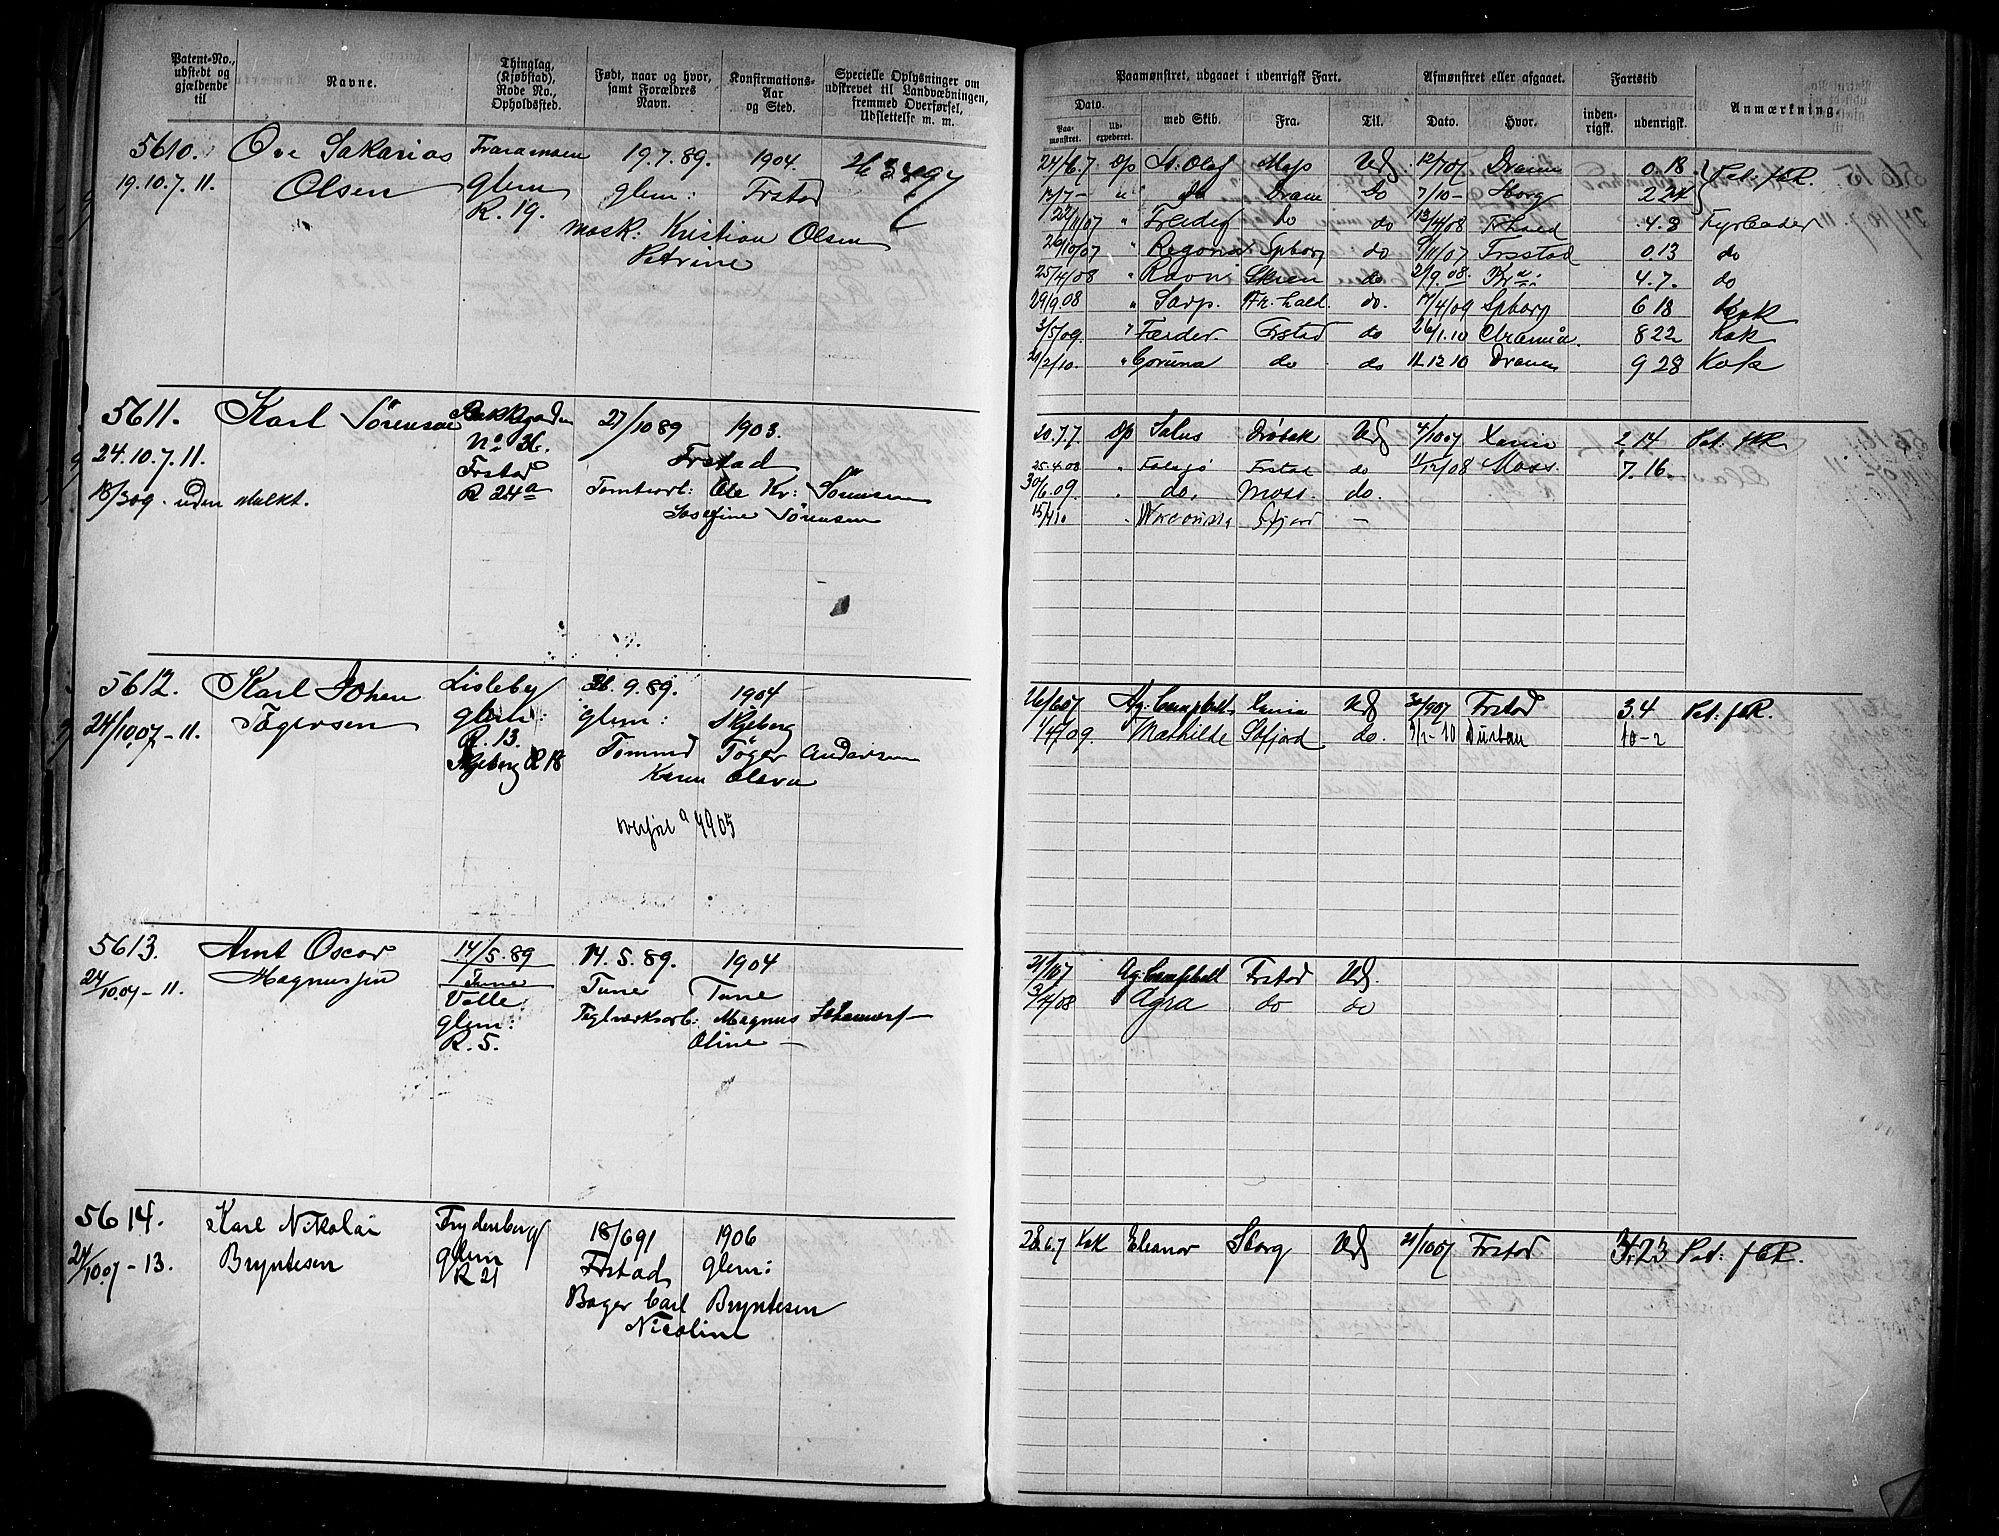 Patent-No., udstedt og gjældende til
Navne.
Thinglag, (Kjøbstad), Rode No., Opholdssted.
Født, naar og hvor, samt Forældres Navn.
Konfirmations-Aar og Sted.
Specielle Oplysninger om udskrevet til Landvæbningen, fremmed Overførsel, Udslettelse m. m.
5610. Ove Sakarias 19.7.89. 1904.
19.10.7.11. Olsen Glem Glem: Frstad
R. 19. Mask: Kristian Olsen
Petrine
5611. Karl Sørensen Bakkegaden 27/10 89 1903.
24.10.7.11. No 36. Frstad
Frstad
18/3 09. uden Mulkt. R 24a Tomtearb: Ole Kr: Sørensen
Josefine Sørensen
5612. Karl Johan Lisleby 26.9.89. 1904
24/10.07-11. Tøgersen Glem: Glem: Skjeberg
R. 13. Tømmd Tøger Andersen
Skjeberg R 18 Karen Olava
overført a 4905
5613. Arnt Oscar 14/5.89 14.5.89. 1904
24/10.07-11. Magnussen Tune Tune Tune
Valle Teglværksarb: Magnus
Glem: Oline —
R. 5.
5614. Karl Nikolai Frydenberg 18/6 91 1906
24/10.07-13. Bryntesen Glem Frstad Glem:
R 21
Bager Carl Bryntesen
Nicoline
Paamønstret, udgaaet i udenrigsk Fart.
Afmønstret eller afgaaet.
Fartstid
Dato.
Paa-mønstret.
Ud-expederet.
med Skib.
Fra.
Til.
Dato.
Hvor.
inden-rigsk.
udenrigsk.
Anmærkning.
24/6.7 Dp St. Olaf Moss Uds 12/7 07 Dramn 0.18 Pat: f&R.
13/7 - " do Dram Do 7/10 - Sborg 2 24
22/11 07 " Færder do do 13/4 08 Frhald 4.8 Fyrbøder
26/10 07 " Regona Spborg do 9/11 07 Frstad 0.13 do
25/4 08 " Ravn Skien do 2/9.08. Kra: 4.7. do
29/9 08 " Sarp. Fr.hald. do. 17/4 09 Spborg 6 18 Kok
3/5 09. " Færder. Frstad do 26/1.10 8 22 Kok
21/2 10. " Coruna do do 11.12 10 Dramn 9 28 Kok
20.7.7. Dp Salus Drøbak Uds 4/10 07 Xania 2.14 Pat: f&R
25.4.08 " Frstad do 11/12/08 Moss. 7.16.
30/6.09. " do. Moss. do.
15/4 10 " Sfjord —
26/6 07 Ag: Campbell Uds 30/9 07 Frstad 3.4 Pat: f&R.
1/4 09. Mathilde Sfjord do. 3/2-10 Durban 10-2
21/1 07 Ag: Campbell Frstad Uds.
3/4/08 Agra do do
28.6.7 Kok Eleanor Sborg Uds 21/10 07 Frstad 3.23 Pat: f&R.